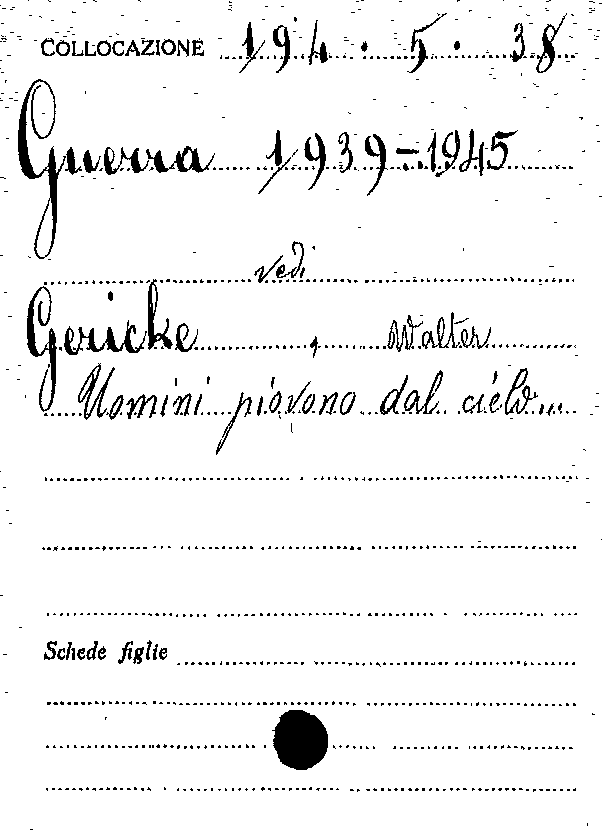 COLLOCAZIONE 194 . 5 . 38
Guerra 1939-1945
vedi
Gericke, Walter
Uomini piovono dal cielo...
Schede figlie